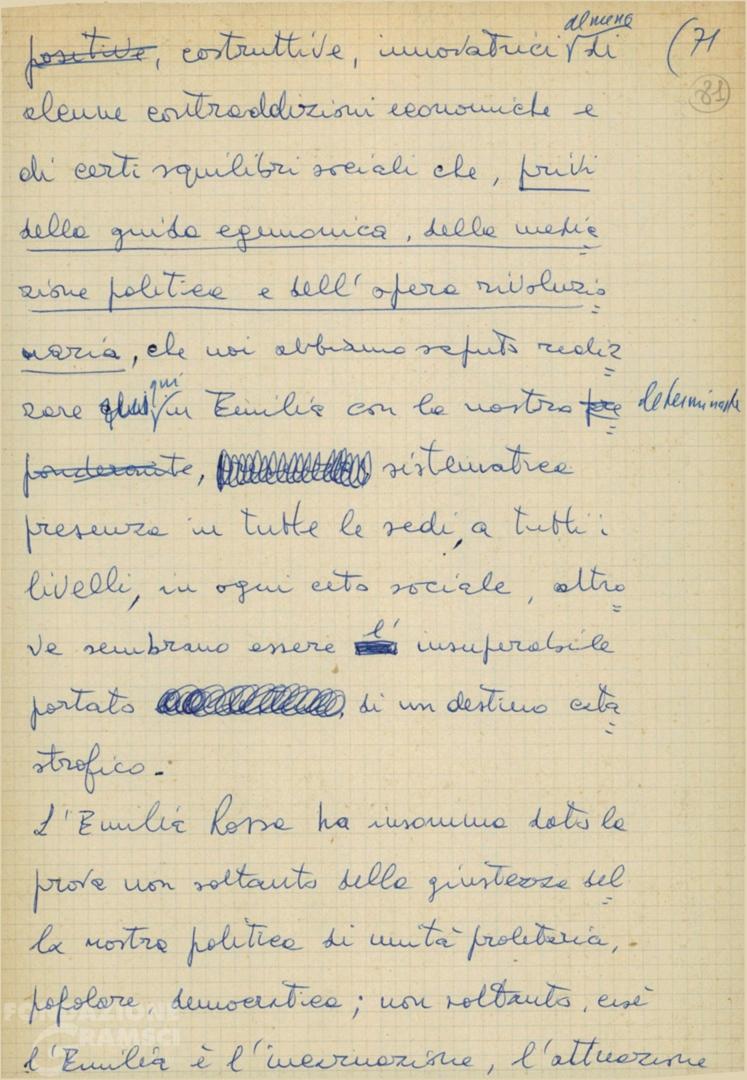 almeno
positive, costruttive, innovatrici di (71
81
alcune contraddizioni economiche e
di certi squilibri sociali che, privi
della guida egemonica, della media
zione politica e dell'opera rivoluzio
naria, che noi abbiamo saputo realiz
qui
zare in Emilia con la nostra pre determinante
ponderante, sistematica
presenza in tutte le sedi, a tutti i
livelli, in ogni ceto sociale, altro
ve sembrano essere l' insuperabile
portato di un destino cata
strofico.
L'Emilia Rossa ha insomma dato la
prova non soltanto della giustezza del
la nostra politica di unità proletaria,
popolare, democratica; non soltanto, cioè
l'Emilia è l'incarnazione, l'attuazione
FONDAZIONE
GRAMSCI